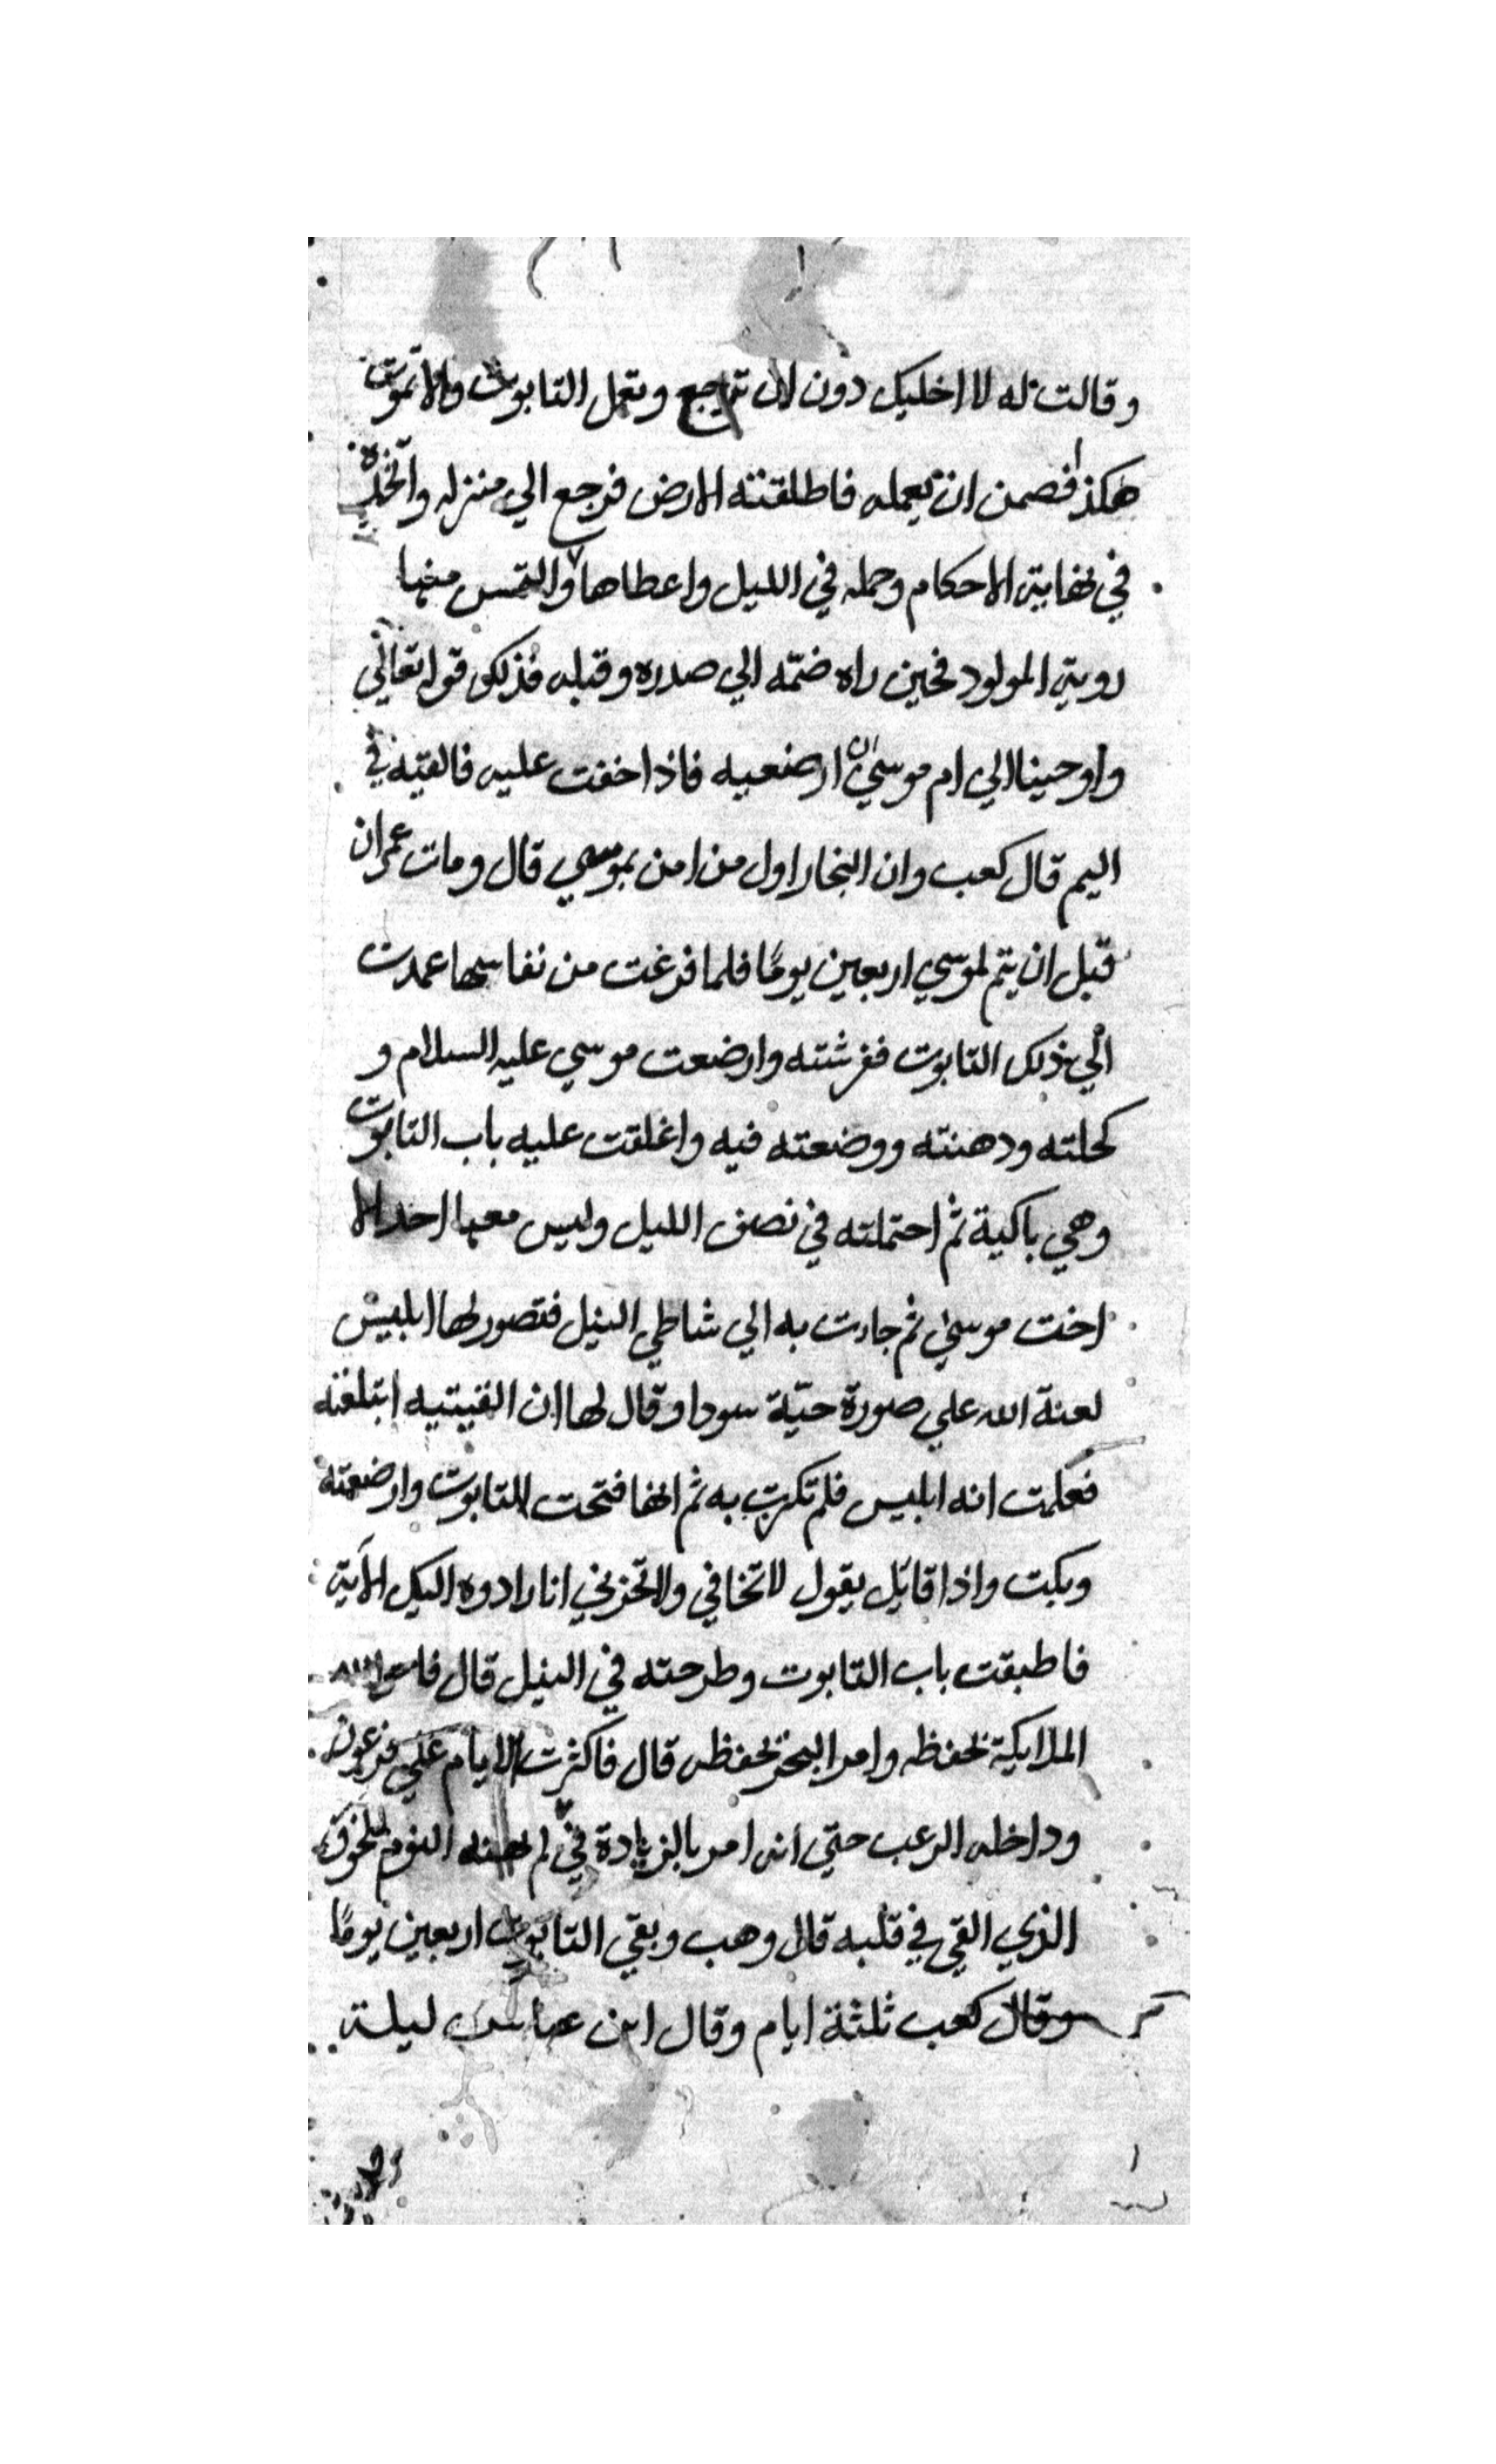 وقالت له لا اخليك دون لان تراجع وتعمل التابوت والا تموت
هكذا فضمن ان يعمله فاطلقته الارض فرجع الي منزله واتخذه
في نهاية الاحكام وحمله في الليل واعطاها والتمس منها
روية المولود فحين راه ضمّه الي صدره وقبله فذلك قوله تعالي
واوحينا الي ام موسي ان ارضعيه فاذا خفت عليه فالقيه في
اليم قال كعب وان النجار اول من امن بموسي قال ومات عمران
قبل ان يتم لموسي اربعين يومًا فلما فرغت من نفاسها عمدت
الي ذلك التابوت ففرشته وارضعت موسي عليه السلام و
كحلته ودهنته ووضعته فيه واغلقت عليه باب التابوت
وهي باكية ثم احتملته في نصف الليل وليس معها احد الا
اخت موسي ثم جاءت به الي شاطي النيل فتصور لها ابليس
لعنة الله علي صورة حيّة سودا وقال لها ان القيتيه ابتلعته
فعلمت انه ابليس فلم تكرب به ثم انها فتحت التابوت وارضعته
وبكت واذا قايل يقول لا تخافي ولا تحزني انا رادوه اليك الآية
فاطبقت باب التابوت وطرحته في النيل قال
الملايكة تحفظه وامر البحر تحفظه قال فاكثرت الايام علي فرعون
وداخله الرعب حتي انه امر بالزيادة في لم النوم للخوف
الذي القي في قلبه قال وهب وبقي التابوت اربعين يومًا
وقال كعب ثلثة ايام وقال ابن عباس ليلة